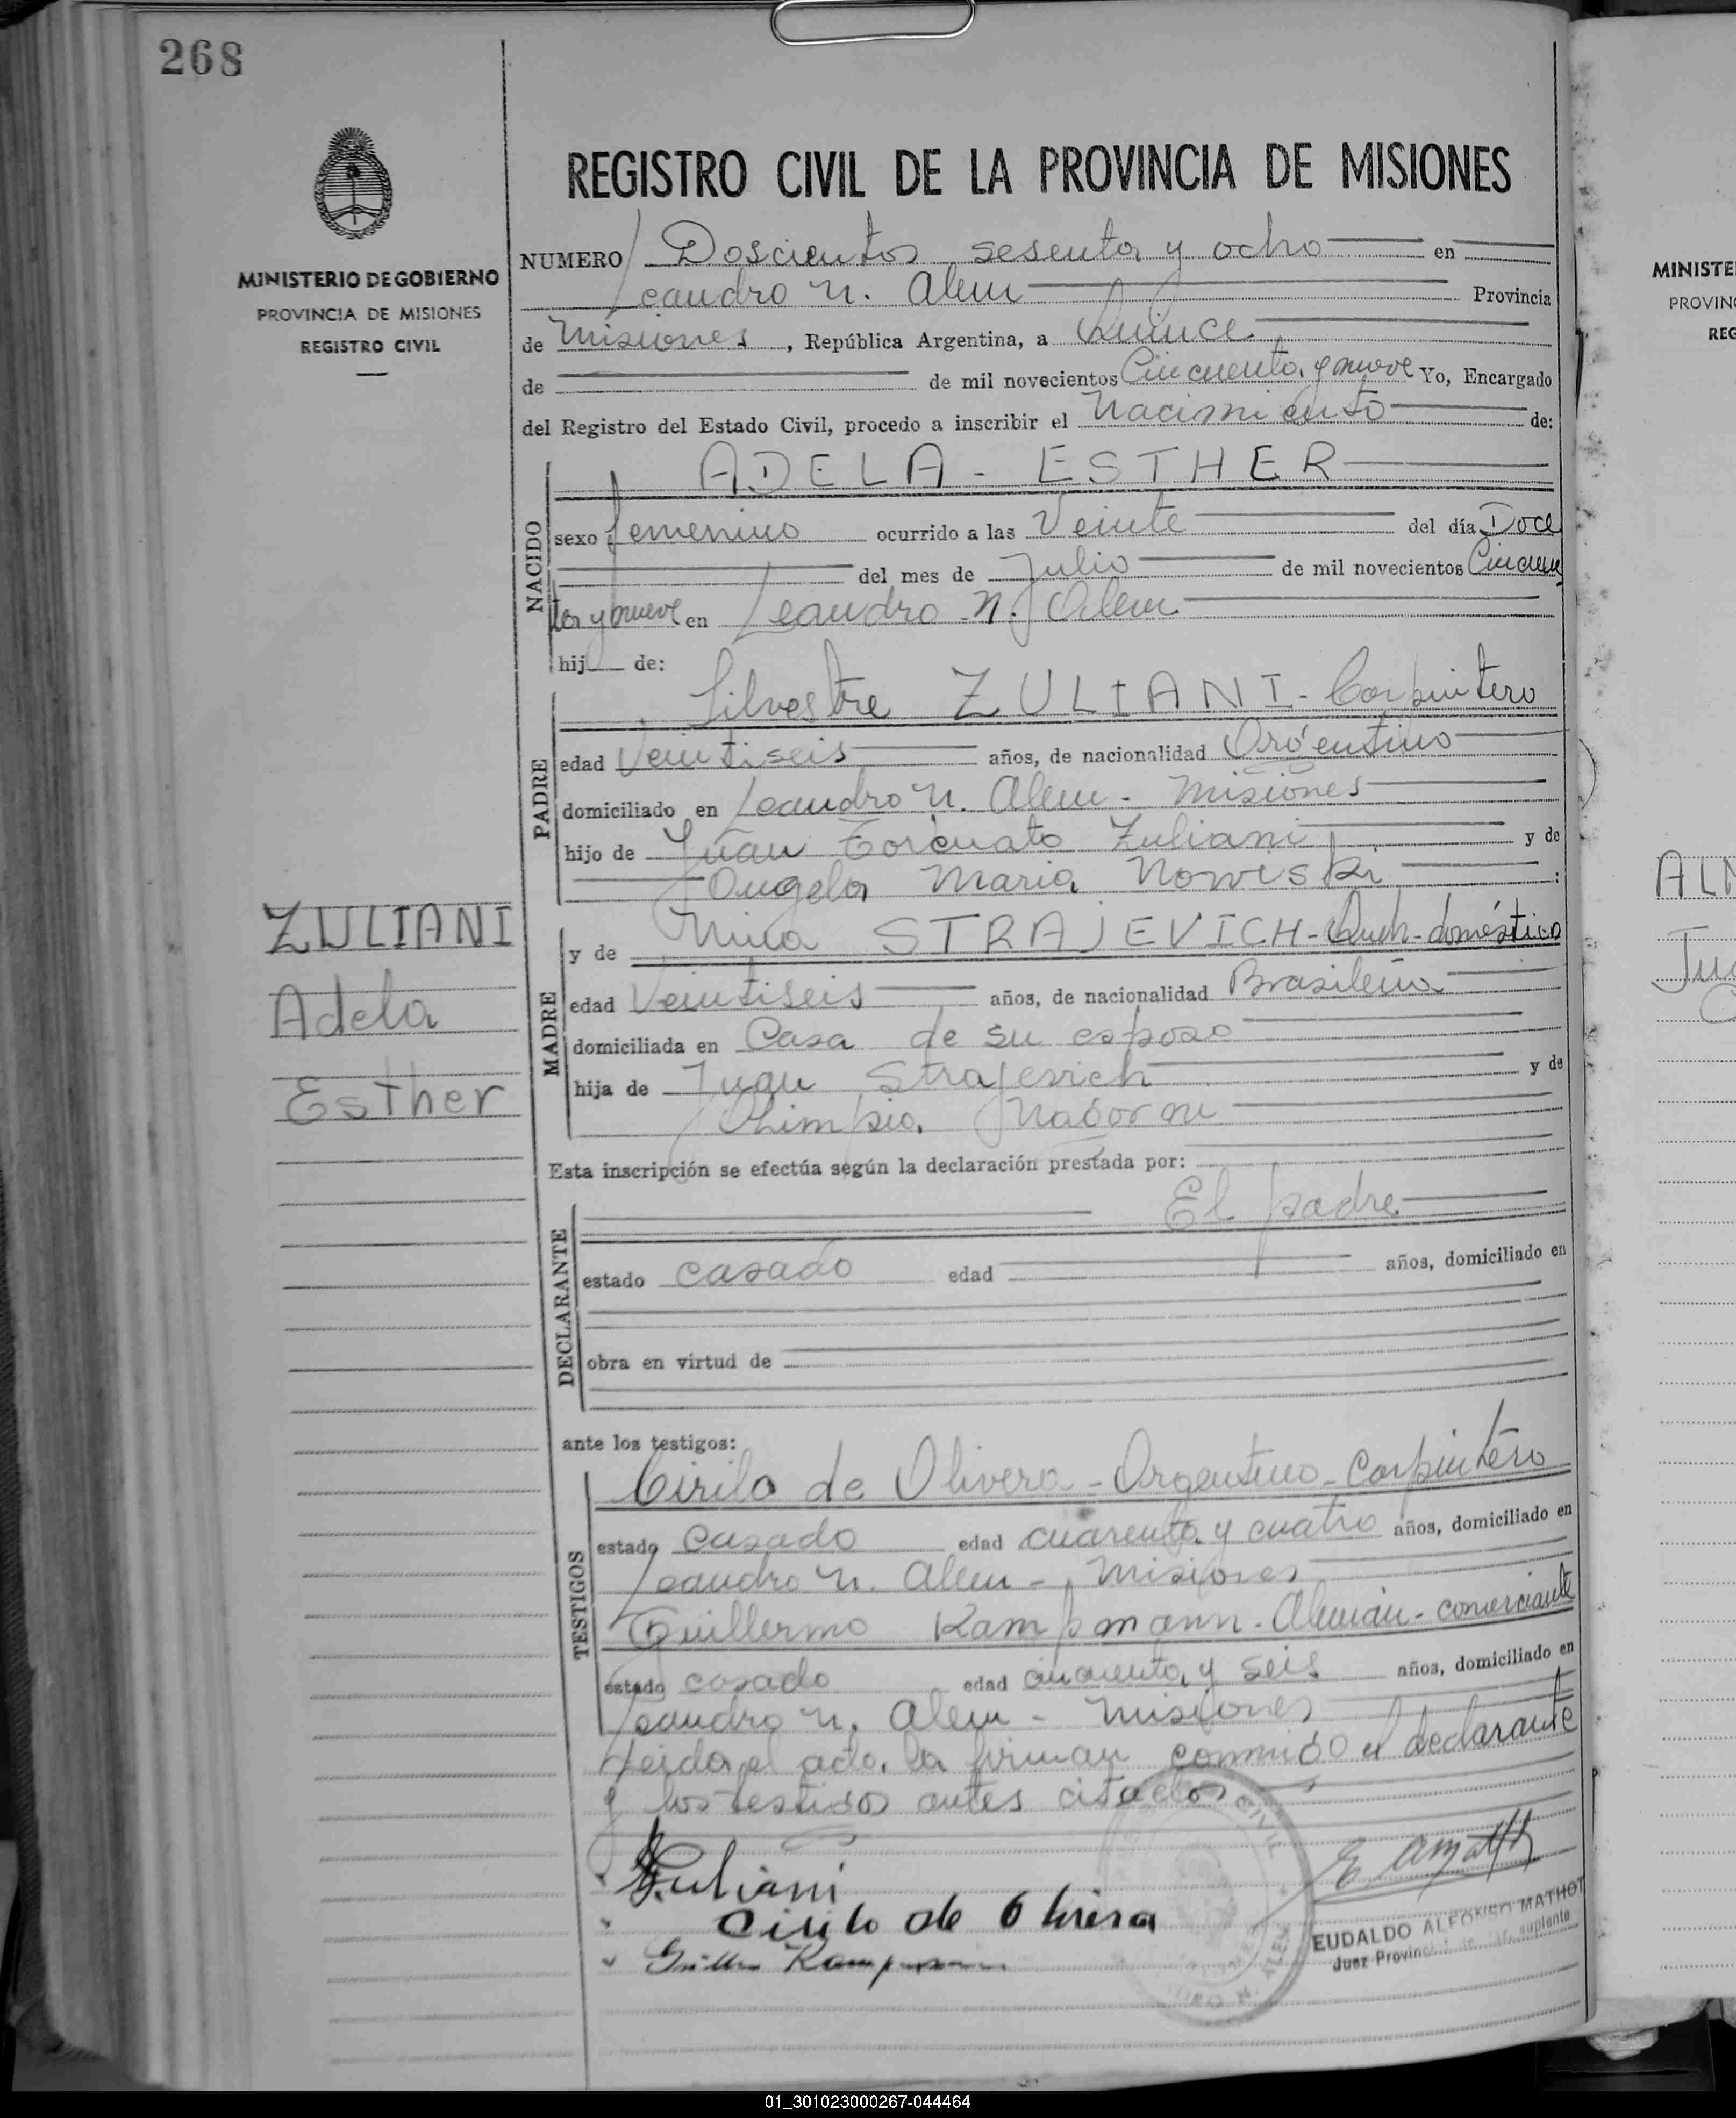 268
MINISTERIO DE GOBIERNO
PROVINCIA DE MISIONES
REGISTRO CIVIL
REGISTRO CIVIL DE LA PROVINCIA DE MISIONES
NUMERO Doscientos sesenta y ocho en
Leandro N. Alem Provincia
de Misiones, República Argentina, a Quince
de de mil novecientos Cincuenta y nueve Yo, Encargado
del Registro del Estado Civil, procedo a inscribir el Nacimiento de:
NACIDO
ADELA - ESTHER
sexo femenino ocurrido a las Veinte del día Doce
del mes de Julio de mil novecientos Cincuen
ta y nueve en Leandro N. Alem
hij de:
PADRE
Silvestre ZULIANI - Carpintero
edad Veintiseis años, de nacionalidad Argentino
domiciliado en Leandro N. Alem - Misiones
hijo de Juan Torcuato Zuliani y de
Angela Maria Nowiski
ZULIANI
Adela
Esther
MADRE
y de Nina STRAJEVICH - Queh-doméstico
edad Veintiseis años, de nacionalidad Brasileña
domiciliada en Casa de su esposo
hija de Juan Strajevich y de
Olimpia Nagorni
Esta inscripción se efectúa según la declaración prestada por:
DECLARANTE
El padre
estado casado edad años, domiciliado en
obra en virtud de
ante los testigos:
TESTIGOS
Cirilo de Olivera - Argentino - Carpintero
estado Casado edad cuarenta y cuatro años, domiciliado en
Leandro N. Alem - Misiones
Guillermo Kampmann - Alemán - comerciante
estado casado edad cincuenta y seis años, domiciliado en
Leandro N. Alem - Misiones
Leida el acta, la firman conmigo el declarante
y los testigos antes citados
Zuliani
Cirilo de Olivera
Kampmann
EUDALDO ALFONSO MATHOT
Juez Provinc suplente
CIVIL
N. ALEM
MINISTE
PROVIN
REG
ALM
Ju
01_301023000267-044464